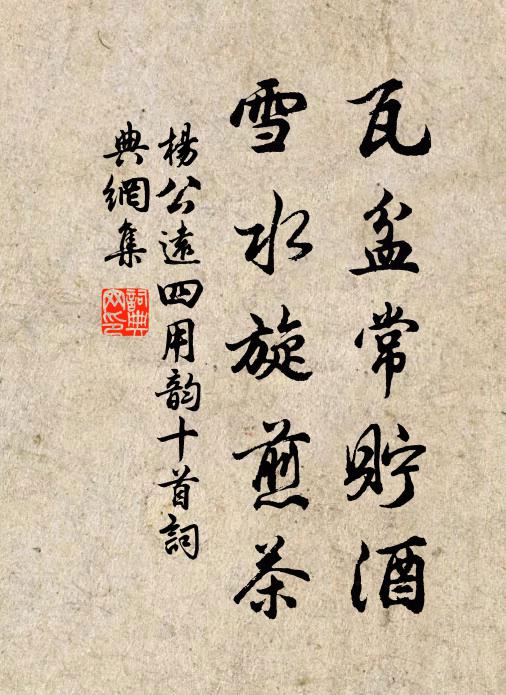 瓦盆常貯酒
雪水旋煎茶
楊公遠四用韵十首詞
典網集
詞典網印